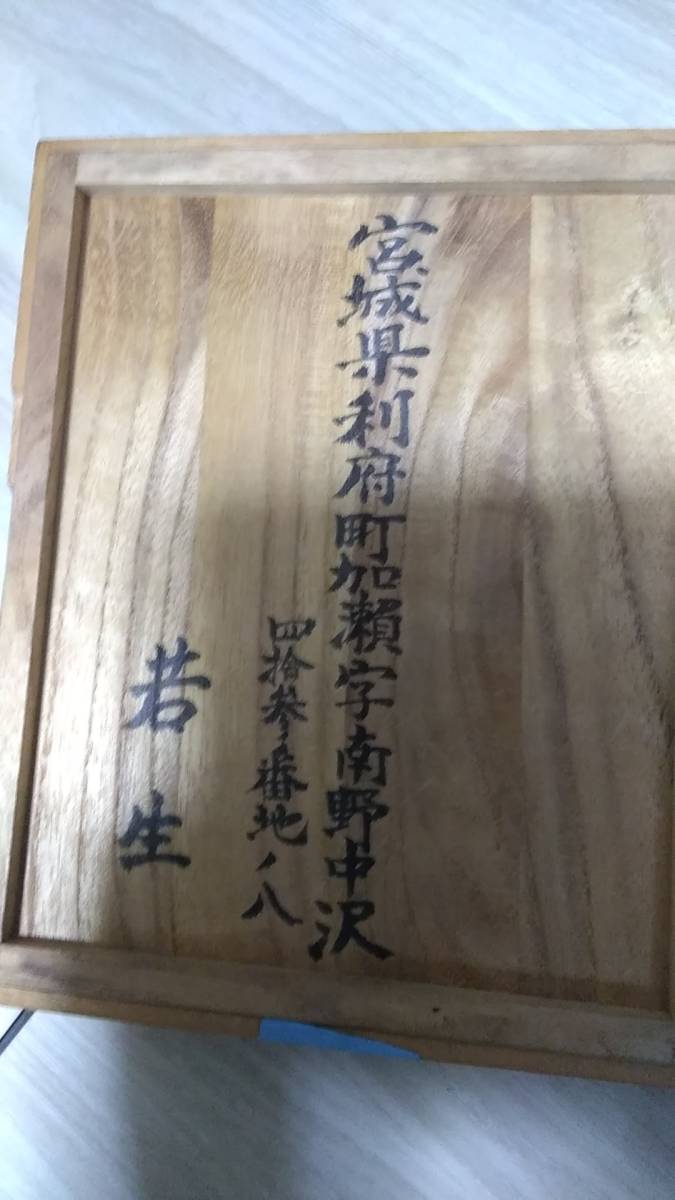 宮城県利府町加瀬字南野中沢
四拾参番地ノ八
若生